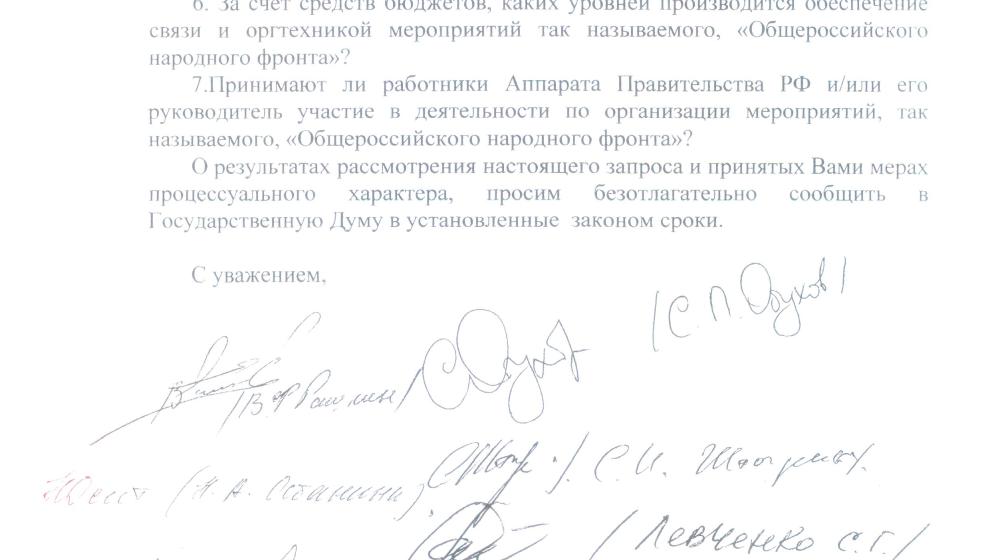 6. За счет средств бюджетов, каких уровней производится обеспечение
связи и оргтехникой мероприятий так называемого, «Общероссийского
народного фронта»?
7.Принимают ли работники Аппарата Правительства РФ и/или его
руководитель участие в деятельности по организации мероприятий, так
называемого, «Общероссийского народного фронта»?
О результатах рассмотрения настоящего запроса и принятых Вами мерах
процессуального характера, просим безотлагательно сообщить в
Государственную Думу в установленные законом сроки.
С уважением,
/С.П. Обухов/
/В.Ф. Рашкин/
(Н.А. Останина)
/ С.И. Штогрин/
/Левченко С.Г./